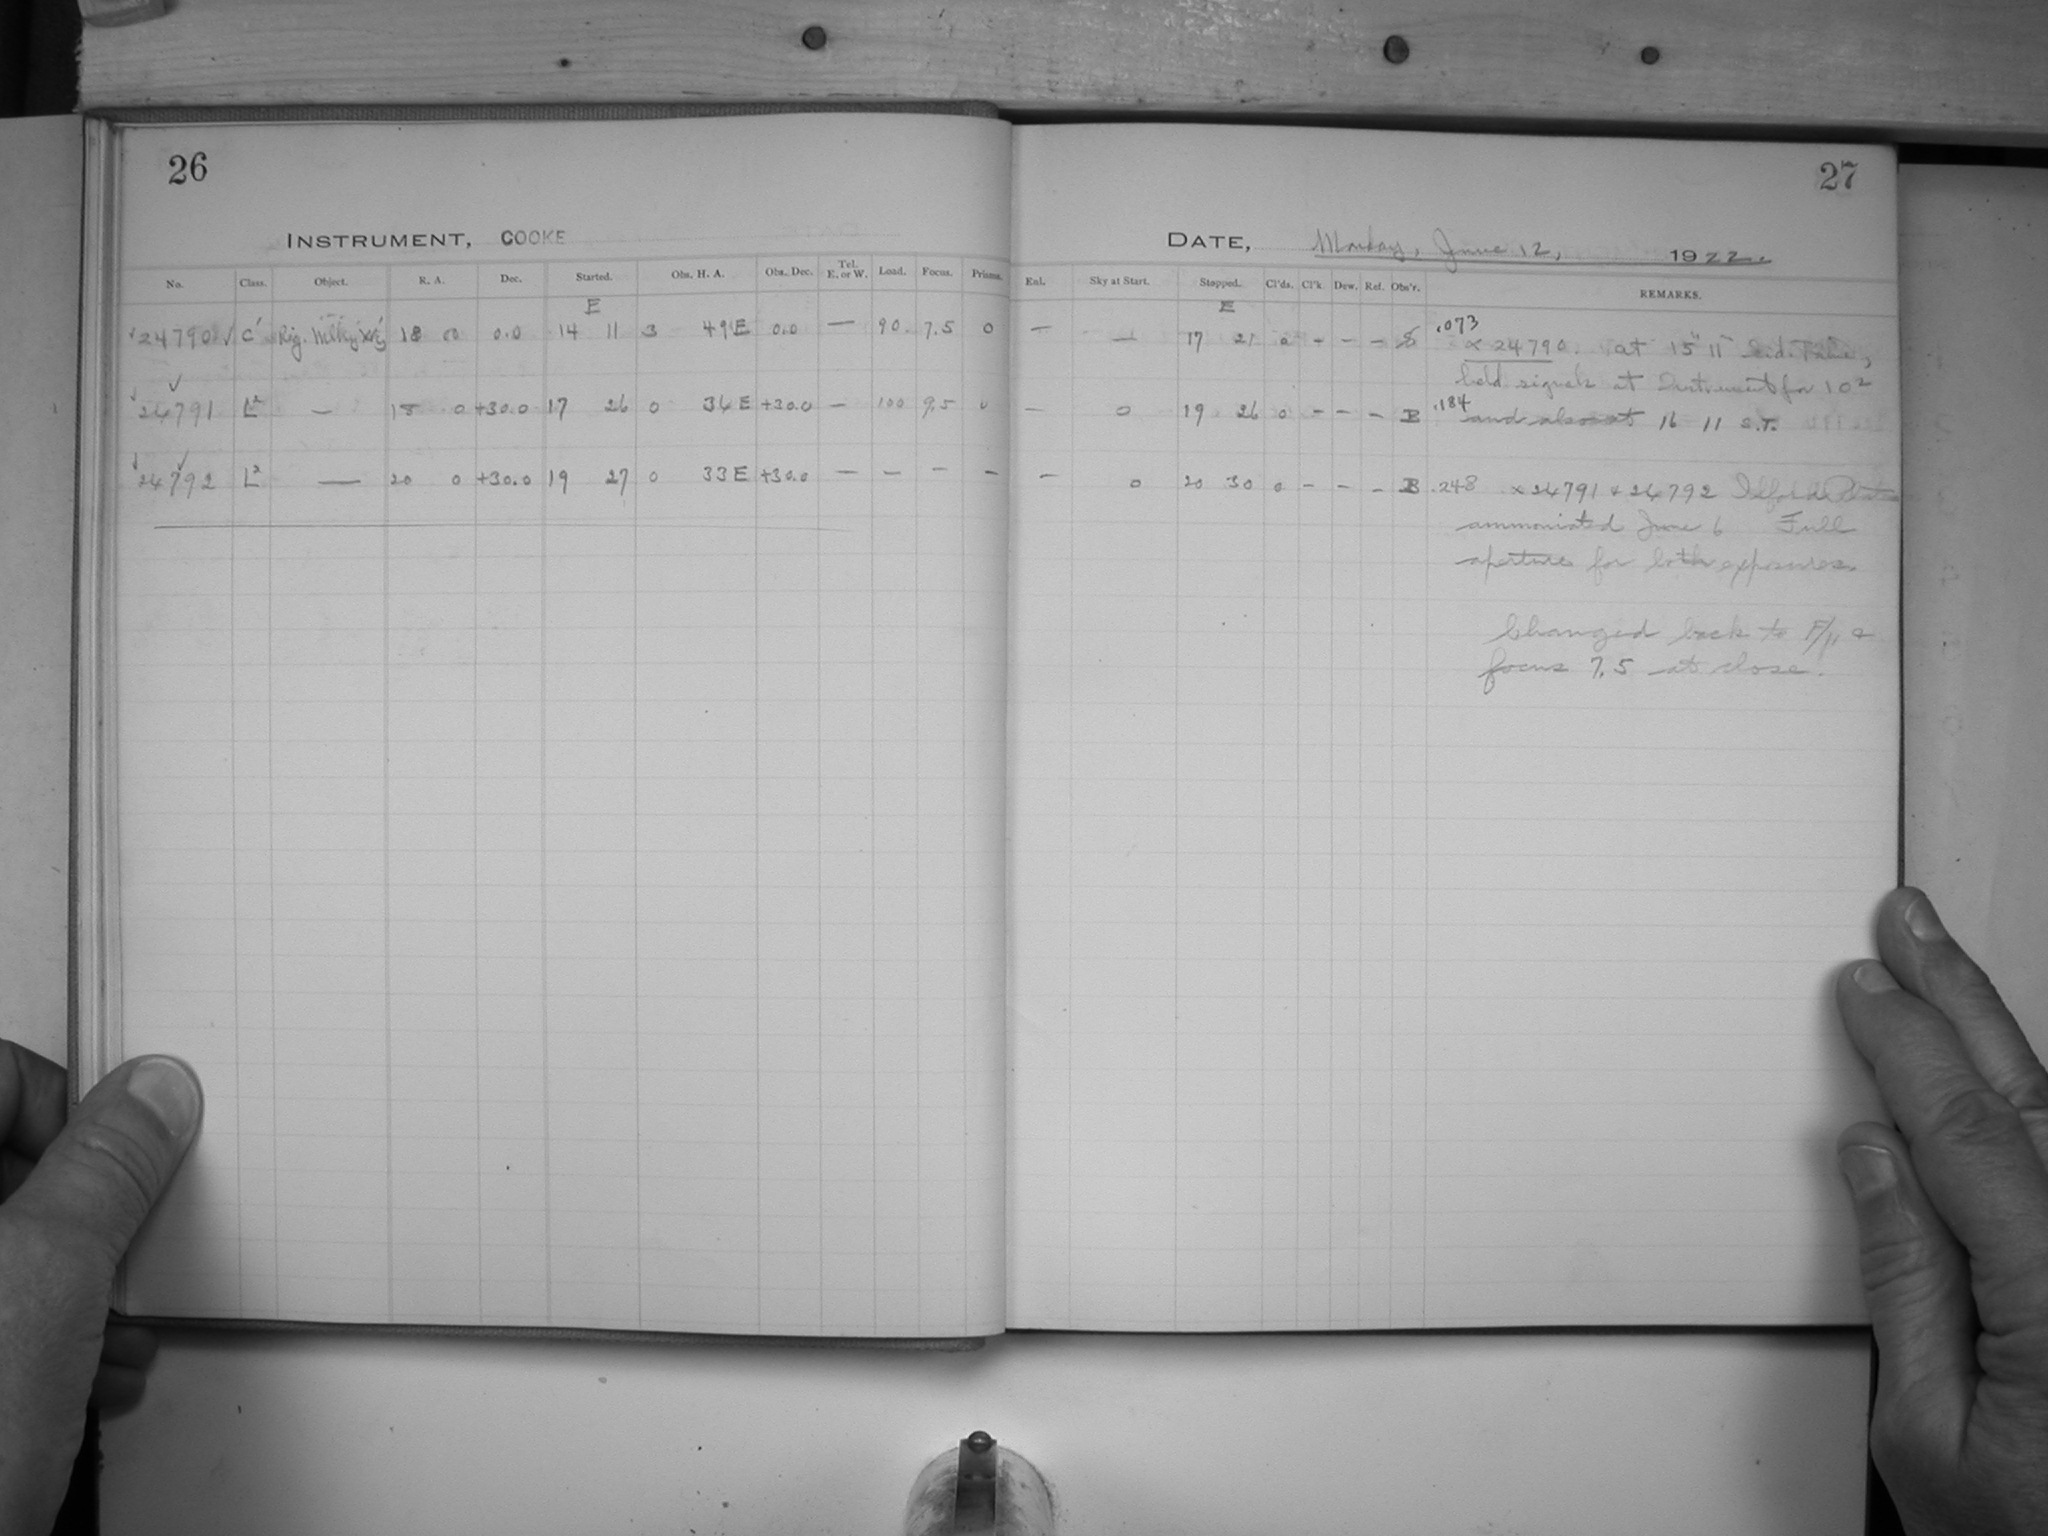 26
INSTRUMENT, COOKE
No. Class. Object. R. A. Dec. Started. Obs. H. A. Obs. Dec. Tel. E. or W. Load. Focus. Prisms.
E
24790 C' Rig. Milky Way 18 0 0.0 14 11 3 49E 0.0 — 90. 7.5 0
24791 L² — 18 0 +30.0 17 26 0 34E +30.0 — 100 9.5 0
24792 L² — 20 0 +30.0 19 27 0 33E +30.0 — — — —
27
DATE, Monday, June 12, 1922.
Enl. Sky at Start. Stopped. Cl'ds. Cl'k. Dew. Ref. Obs'r. REMARKS.
E
— — 17 21 0 - - - S .073
× 24790. at 15 11 Sid. Time,
held signals at Instrument for 10
— 0 19 26 0 - - - B .184 and also at 16 11 S.T.
— 0 20 30 0 - - - B .248 × 24791 & 24792
ammoniated June 6 Full
aperture for both exposures.
Changed back to F/11 &
focus 7.5 at close.